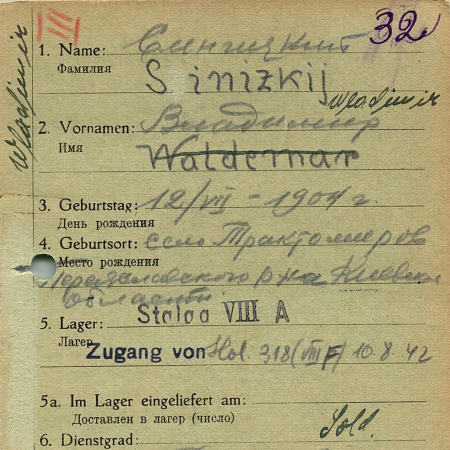 III
32
Wladimir
1. Name: Синицкий
Фамилия
Sinizkij
Wladimir
2. Vornamen: Владимир
Имя
Waldemar
3. Geburtstag: 12/VII - 1904 г.
День рождения
4. Geburtsort: село Трактомиров
Место рождения
р-на Киевской
области
5. Lager: Stalag VIII A
Лагерь
Zugang von Stal. 318 (VIII F) 10.8.42
5a. Im Lager eingeliefert am:
Доставлен в лагерь (число)
Sold.
6. Dienstgrad: